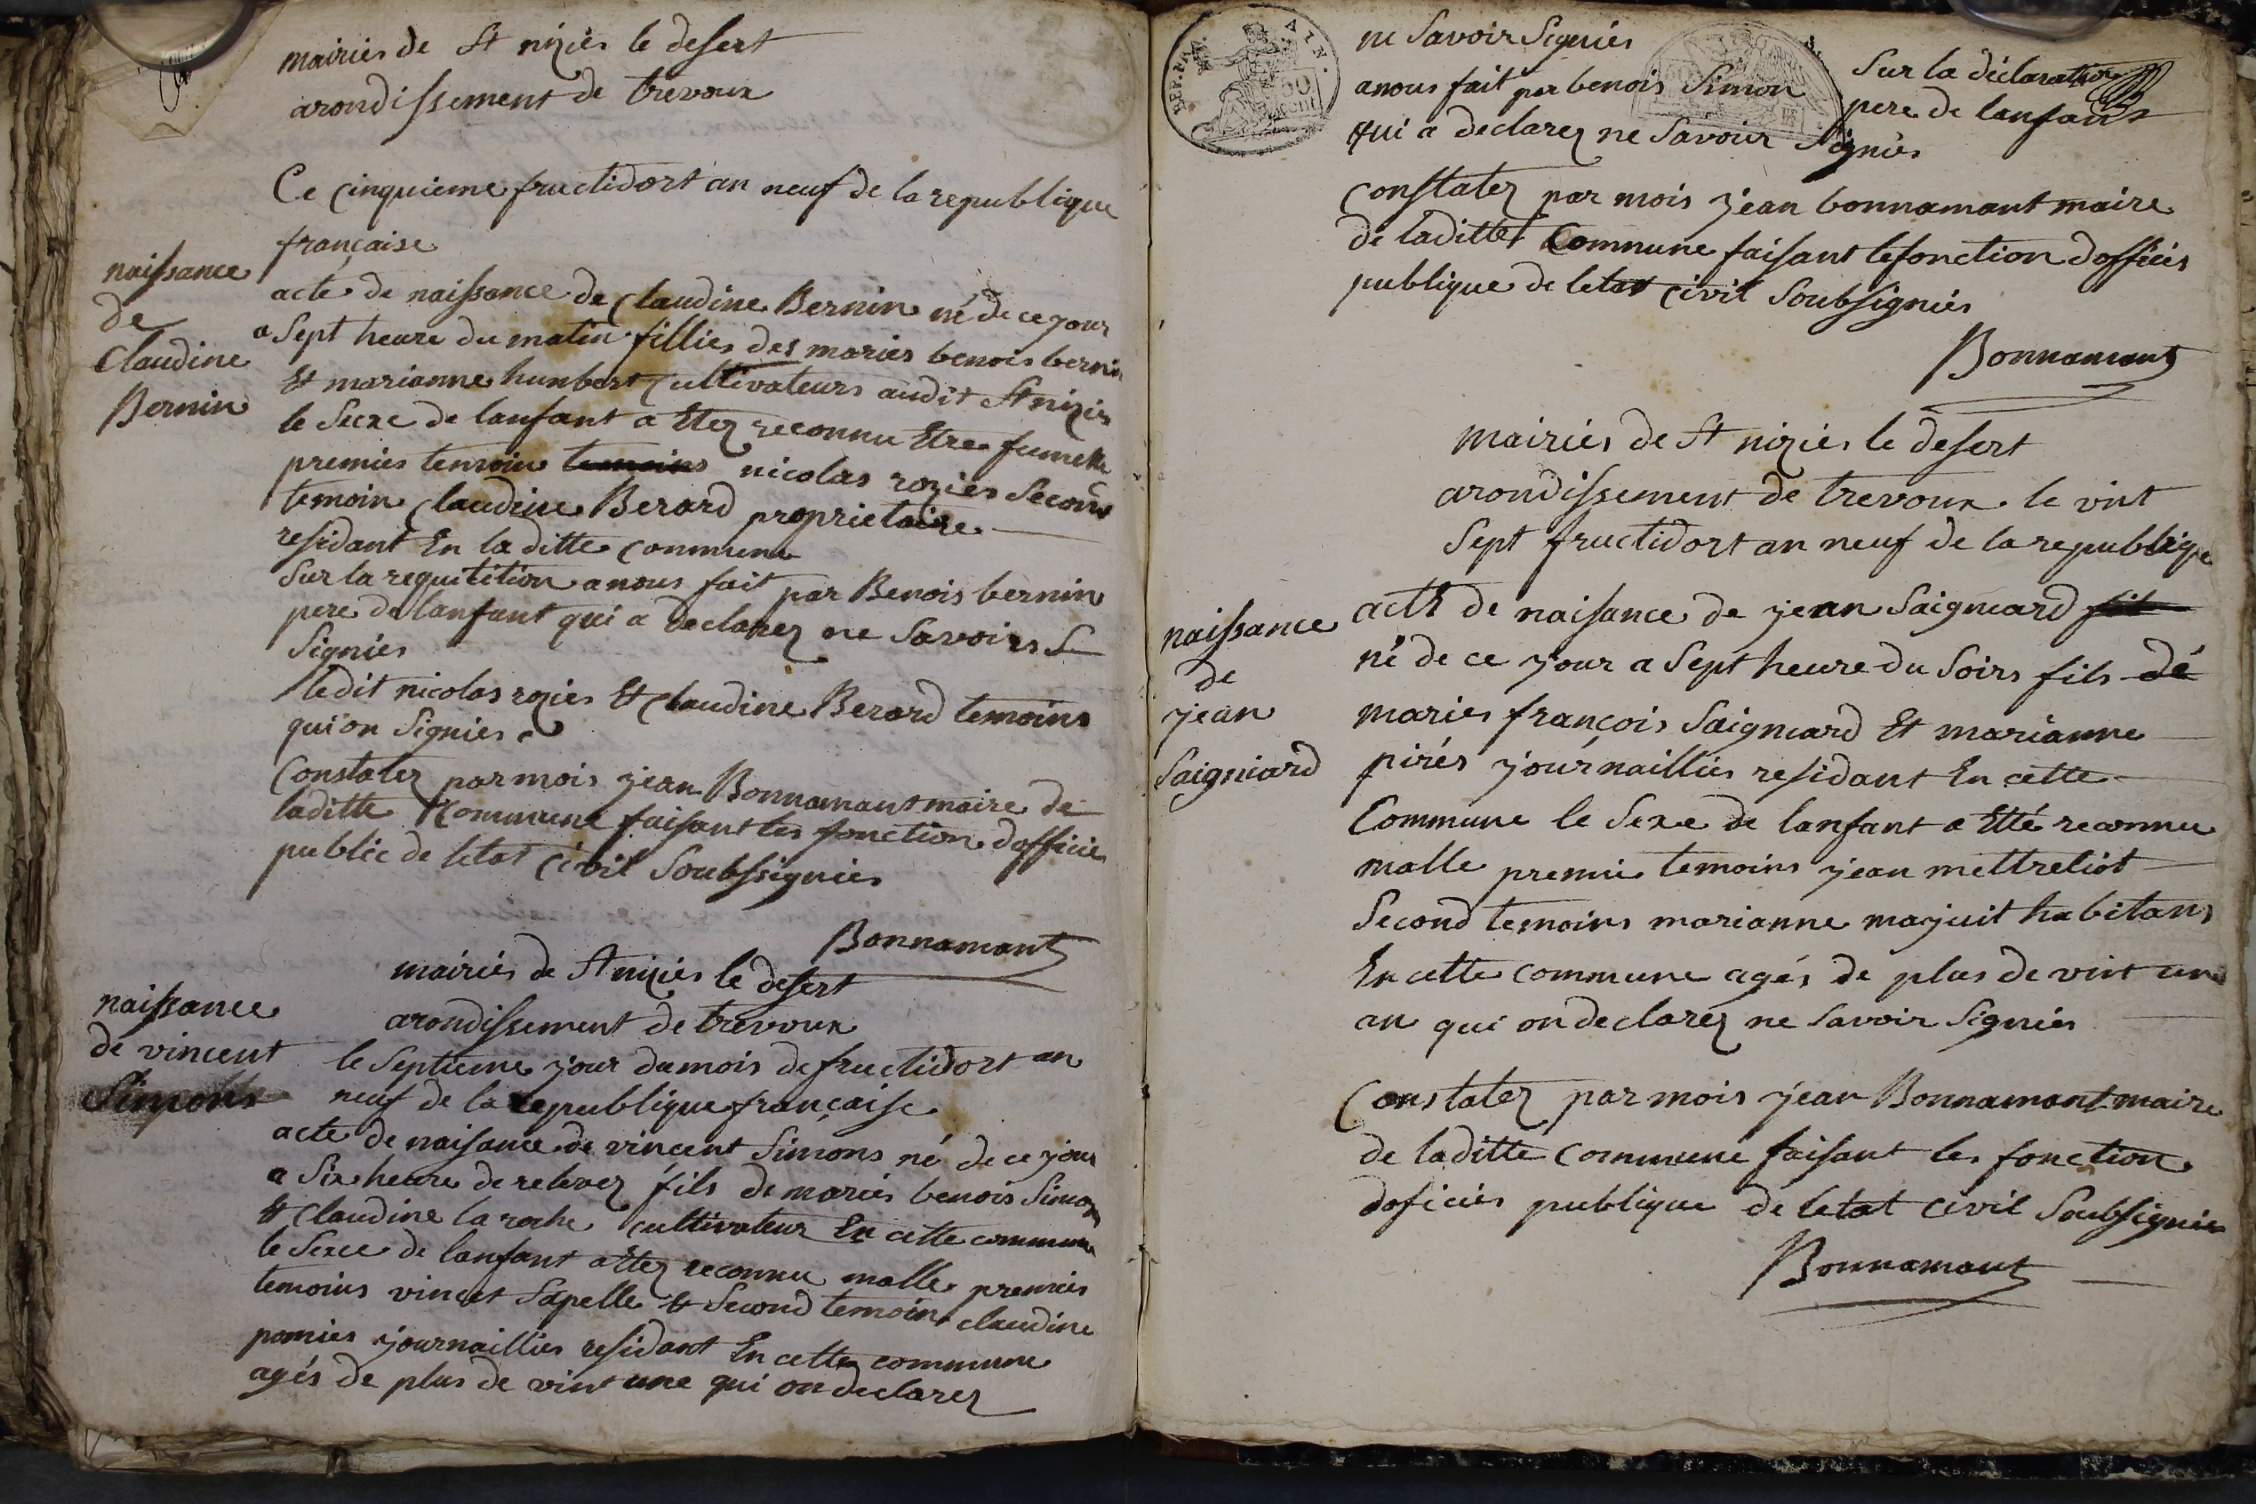 mairies de St nizies le desert
arondissement de trevoux
Ce cinquieme fructidort an neuf de la republique
française
naissance
de
Claudine
Bernin
acte de naissance de Claudine Bernin né de ce jour
a Sept heure du matin fillies des maries benois bernin
Et marianne hunbert Cultivateurs audit St nizies
le Secxe de lanfant a Etez reconnu Etre fumelle
premies temoin temoins nicolas rozies Second
temoin Claudine Berard proprietaire
residant En la ditte Commune
Sur la requitition a nous fait par Benois bernin
pere de lanfant qui a declarez ne Savoirs S
Signiés
ledit nicolas rozies Et Claudine Berard temoins
qui on Signies
Constatez par mois jean Bonnamant maire de
laditte Commune faisant les fonction dofficies
public de letat Civil Soubssignies
Bonnamant
mairies de St nizies le desert
arondissement de trevoux
naissance
de vincent
Simons
le Septieme jour du mois de fructidort an
neuf de la republique française
acte de naisance de vincent Simons né de ce jour
a Six heure de relevez fils de maries benois Simon
Et Claudine la roche Cultivateur En cette commune
le Sexe de lanfant a Etez reconnu malle premies
temoins vincet Sapelle Et Second temoins claudine
pomies journaillies residant En cette commune
agés de plus de vint une qui on declarez
ne Savoir Signiés
Sur la déclaration
anous fait par benois Simon pere de lanfant
qui a declarez ne Savoir Signiés
Constatez par mois jean bonnamant maire
de laditte Commune faisant le fonction dofficies
publique de letat Civil Soubsigniés
Bonnamant
mairies de St nizies le desert
arondissement de trevoux le vint
Sept fructidort an neuf de la republique
naissance
de
jean
Saigniard
acte de naisance de jean Saigneard fils
né de ce jour a Sept heure du Soirs fils dé
maries françois Saigneard Et marianne
pirés journaillies residant En cette
Commune le Sexe de lanfant a Etté reconnu
malle premie temoins jean mettreliot
Second temoins marianne majuit habitans
En cette commune agés de plus de vint un
an qui on declarez ne Savoir Signiés
Constatez par mois jean Bonnamant maire
de laditte Commune faisant les fonction
doficiés publique de letat Civil Soubsigniés
Bonnamant